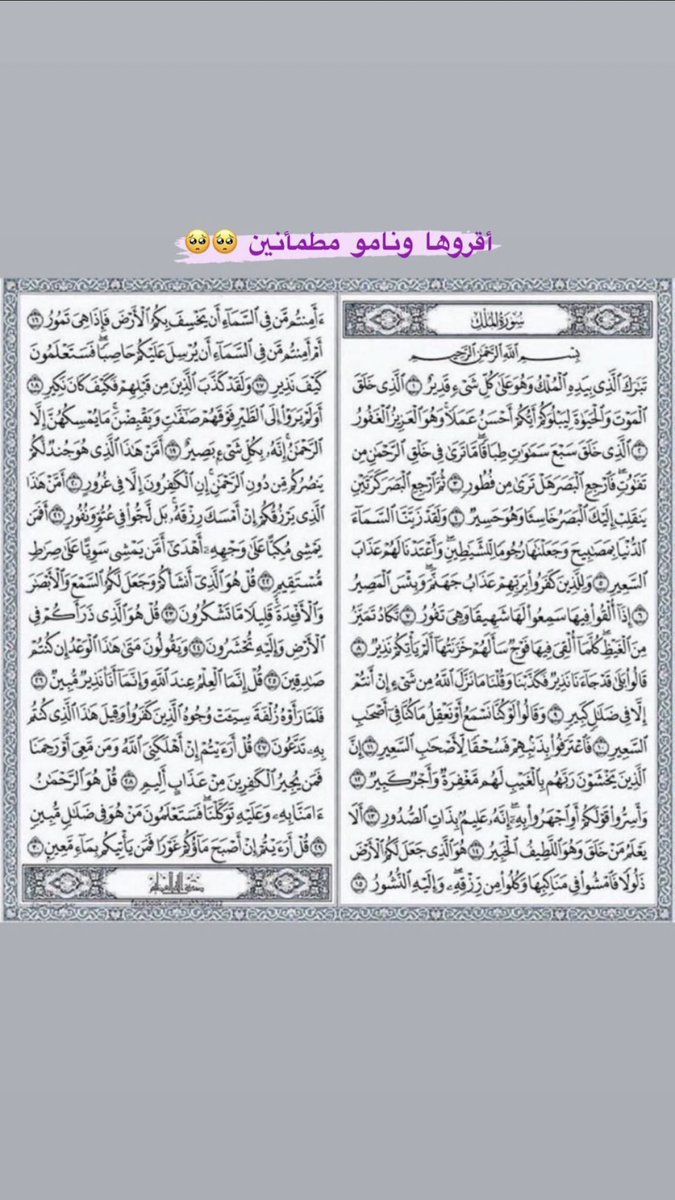 أقروها ونامو مطمأنين 🥺🥺
سُورَةُ المُلْكِ
بِسْمِ اللَّهِ الرَّحْمَٰنِ الرَّحِيمِ
تَبَٰرَكَ ٱلَّذِى بِيَدِهِ ٱلْمُلْكُ وَهُوَ عَلَىٰ كُلِّ شَىْءٍ قَدِيرٌ ١ ٱلَّذِى خَلَقَ
ٱلْمَوْتَ وَٱلْحَيَوٰةَ لِيَبْلُوَكُمْ أَيُّكُمْ أَحْسَنُ عَمَلًا وَهُوَ ٱلْعَزِيزُ ٱلْغَفُورُ
٢ ٱلَّذِى خَلَقَ سَبْعَ سَمَٰوَٰتٍ طِبَاقًا مَّا تَرَىٰ فِى خَلْقِ ٱلرَّحْمَٰنِ مِن
تَفَٰوُتٍ فَٱرْجِعِ ٱلْبَصَرَ هَلْ تَرَىٰ مِن فُطُورٍ ٣ ثُمَّ ٱرْجِعِ ٱلْبَصَرَ كَرَّتَيْنِ
يَنقَلِبْ إِلَيْكَ ٱلْبَصَرُ خَاسِئًا وَهُوَ حَسِيرٌ ٤ وَلَقَدْ زَيَّنَّا ٱلسَّمَآءَ
ٱلدُّنْيَا بِمَصَٰبِيحَ وَجَعَلْنَٰهَا رُجُومًا لِّلشَّيَٰطِينِ وَأَعْتَدْنَا لَهُمْ عَذَابَ
ٱلسَّعِيرِ ٥ وَلِلَّذِينَ كَفَرُوا۟ بِرَبِّهِمْ عَذَابُ جَهَنَّمَ وَبِئْسَ ٱلْمَصِيرُ
٦ إِذَآ أُلْقُوا۟ فِيهَا سَمِعُوا۟ لَهَا شَهِيقًا وَهِىَ تَفُورُ ٧ تَكَادُ تَمَيَّزُ
مِنَ ٱلْغَيْظِ كُلَّمَآ أُلْقِىَ فِيهَا فَوْجٌ سَأَلَهُمْ خَزَنَتُهَآ أَلَمْ يَأْتِكُمْ نَذِيرٌ ٨
قَالُوا۟ بَلَىٰ قَدْ جَآءَنَا نَذِيرٌ فَكَذَّبْنَا وَقُلْنَا مَا نَزَّلَ ٱللَّهُ مِن شَىْءٍ إِنْ أَنتُمْ
إِلَّا فِى ضَلَٰلٍ كَبِيرٍ ٩ وَقَالُوا۟ لَوْ كُنَّا نَسْمَعُ أَوْ نَعْقِلُ مَا كُنَّا فِىٓ أَصْحَٰبِ
ٱلسَّعِيرِ ١٠ فَٱعْتَرَفُوا۟ بِذَنۢبِهِمْ فَسُحْقًا لِّأَصْحَٰبِ ٱلسَّعِيرِ ١١ إِنَّ
ٱلَّذِينَ يَخْشَوْنَ رَبَّهُم بِٱلْغَيْبِ لَهُم مَّغْفِرَةٌ وَأَجْرٌ كَبِيرٌ ١٢
وَأَسِرُّوا۟ قَوْلَكُمْ أَوِ ٱجْهَرُوا۟ بِهِۦٓ إِنَّهُۥ عَلِيمٌۢ بِذَاتِ ٱلصُّدُورِ ١٣ أَلَا
يَعْلَمُ مَنْ خَلَقَ وَهُوَ ٱللَّطِيفُ ٱلْخَبِيرُ ١٤ هُوَ ٱلَّذِى جَعَلَ لَكُمُ ٱلْأَرْضَ
ذَلُولًا فَٱمْشُوا۟ فِى مَنَاكِبِهَا وَكُلُوا۟ مِن رِّزْقِهِۦ وَإِلَيْهِ ٱلنُّشُورُ ١٥
ءَأَمِنتُم مَّن فِى ٱلسَّمَآءِ أَن يَخْسِفَ بِكُمُ ٱلْأَرْضَ فَإِذَا هِىَ تَمُورُ ١٦
أَمْ أَمِنتُم مَّن فِى ٱلسَّمَآءِ أَن يُرْسِلَ عَلَيْكُمْ حَاصِبًا فَسَتَعْلَمُونَ
كَيْفَ نَذِيرِ ١٧ وَلَقَدْ كَذَّبَ ٱلَّذِينَ مِن قَبْلِهِمْ فَكَيْفَ كَانَ نَكِيرِ ١٨
أَوَلَمْ يَرَوْا۟ إِلَى ٱلطَّيْرِ فَوْقَهُمْ صَٰٓفَّٰتٍ وَيَقْبِضْنَ مَا يُمْسِكُهُنَّ إِلَّا
ٱلرَّحْمَٰنُ إِنَّهُۥ بِكُلِّ شَىْءٍۭ بَصِيرٌ ١٩ أَمَّنْ هَٰذَا ٱلَّذِى هُوَ جُندٌ لَّكُمْ
يَنصُرُكُم مِّن دُونِ ٱلرَّحْمَٰنِ إِنِ ٱلْكَٰفِرُونَ إِلَّا فِى غُرُورٍ ٢٠ أَمَّنْ هَٰذَا
ٱلَّذِى يَرْزُقُكُمْ إِنْ أَمْسَكَ رِزْقَهُۥ بَل لَّجُّوا۟ فِى عُتُوٍّ وَنُفُورٍ ٢١ أَفَمَن
يَمْشِى مُكِبًّا عَلَىٰ وَجْهِهِۦٓ أَهْدَىٰٓ أَمَّن يَمْشِى سَوِيًّا عَلَىٰ صِرَٰطٍ
مُّسْتَقِيمٍ ٢٢ قُلْ هُوَ ٱلَّذِىٓ أَنشَأَكُمْ وَجَعَلَ لَكُمُ ٱلسَّمْعَ وَٱلْأَبْصَٰرَ
وَٱلْأَفْـِٔدَةَ قَلِيلًا مَّا تَشْكُرُونَ ٢٣ قُلْ هُوَ ٱلَّذِى ذَرَأَكُمْ فِى
ٱلْأَرْضِ وَإِلَيْهِ تُحْشَرُونَ ٢٤ وَيَقُولُونَ مَتَىٰ هَٰذَا ٱلْوَعْدُ إِن كُنتُمْ
صَٰدِقِينَ ٢٥ قُلْ إِنَّمَا ٱلْعِلْمُ عِندَ ٱللَّهِ وَإِنَّمَآ أَنَا۠ نَذِيرٌ مُّبِينٌ ٢٦
فَلَمَّا رَأَوْهُ زُلْفَةً سِيٓـَٔتْ وُجُوهُ ٱلَّذِينَ كَفَرُوا۟ وَقِيلَ هَٰذَا ٱلَّذِى كُنتُم
بِهِۦ تَدَّعُونَ ٢٧ قُلْ أَرَءَيْتُمْ إِنْ أَهْلَكَنِىَ ٱللَّهُ وَمَن مَّعِىَ أَوْ رَحِمَنَا
فَمَن يُجِيرُ ٱلْكَٰفِرِينَ مِنْ عَذَابٍ أَلِيمٍ ٢٨ قُلْ هُوَ ٱلرَّحْمَٰنُ
ءَامَنَّا بِهِۦ وَعَلَيْهِ تَوَكَّلْنَا فَسَتَعْلَمُونَ مَنْ هُوَ فِى ضَلَٰلٍ مُّبِينٍ
٢٩ قُلْ أَرَءَيْتُمْ إِنْ أَصْبَحَ مَآؤُكُمْ غَوْرًا فَمَن يَأْتِيكُم بِمَآءٍ مَّعِينٍۭ ٣٠